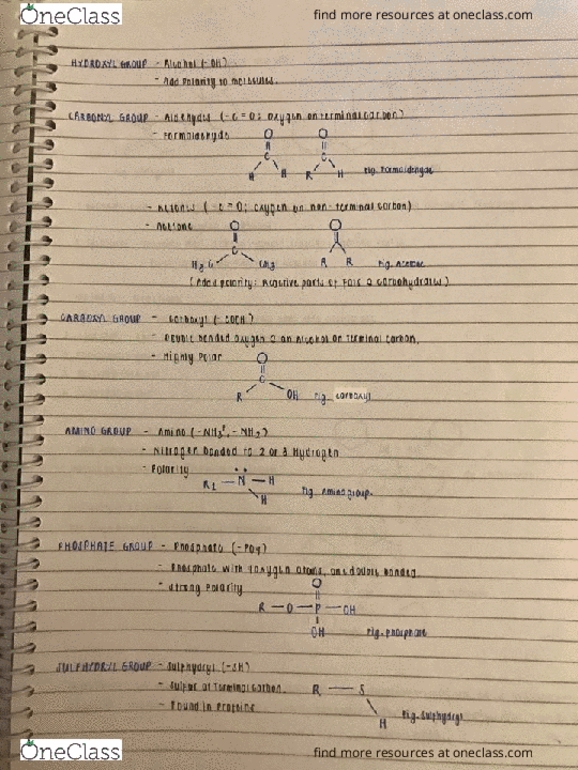 OneClass
find more resources at oneclass.com
HYDROXYL GROUP - Alcohol (-OH)
- Add Polarity to molecules.
CARBONYL GROUP - Aldehydes (-C=O; oxygen on terminal carbon)
- Formaldehyde
O
C
H H
O
C
R H
Fig. Formaldehyde
- Ketones (-C=O; oxygen on non-terminal carbon)
- Acetone
O
C
H3C CH3
O
R R
Fig. Acetone
(Added polarity: Reactive parts of Fats & Carbohydrates)
CARBOXYL GROUP - Carboxyl (-COOH)
- Double bonded oxygen & an Alcohol on Terminal Carbon.
- Highly Polar
O
C
R OH
Fig. Carboxyl
AMINO GROUP - Amino (-NH3+, -NH2)
- Nitrogen bonded to 2 or 3 Hydrogen
- Polarity
R1 — N — H
H
Fig. Amino group.
PHOSPHATE GROUP - Phosphate (-PO4)
- Phosphate with oxygen atoms, one double bonded
- Strong Polarity
O
R — O — P — OH
OH
Fig. phosphate
SULPHYDRYL GROUP - Sulphydryl (-SH)
- Sulphur at Terminal Carbon.
- Found in Proteins
R — S
H
Fig. Sulphydryl
OneClass
find more resources at oneclass.com